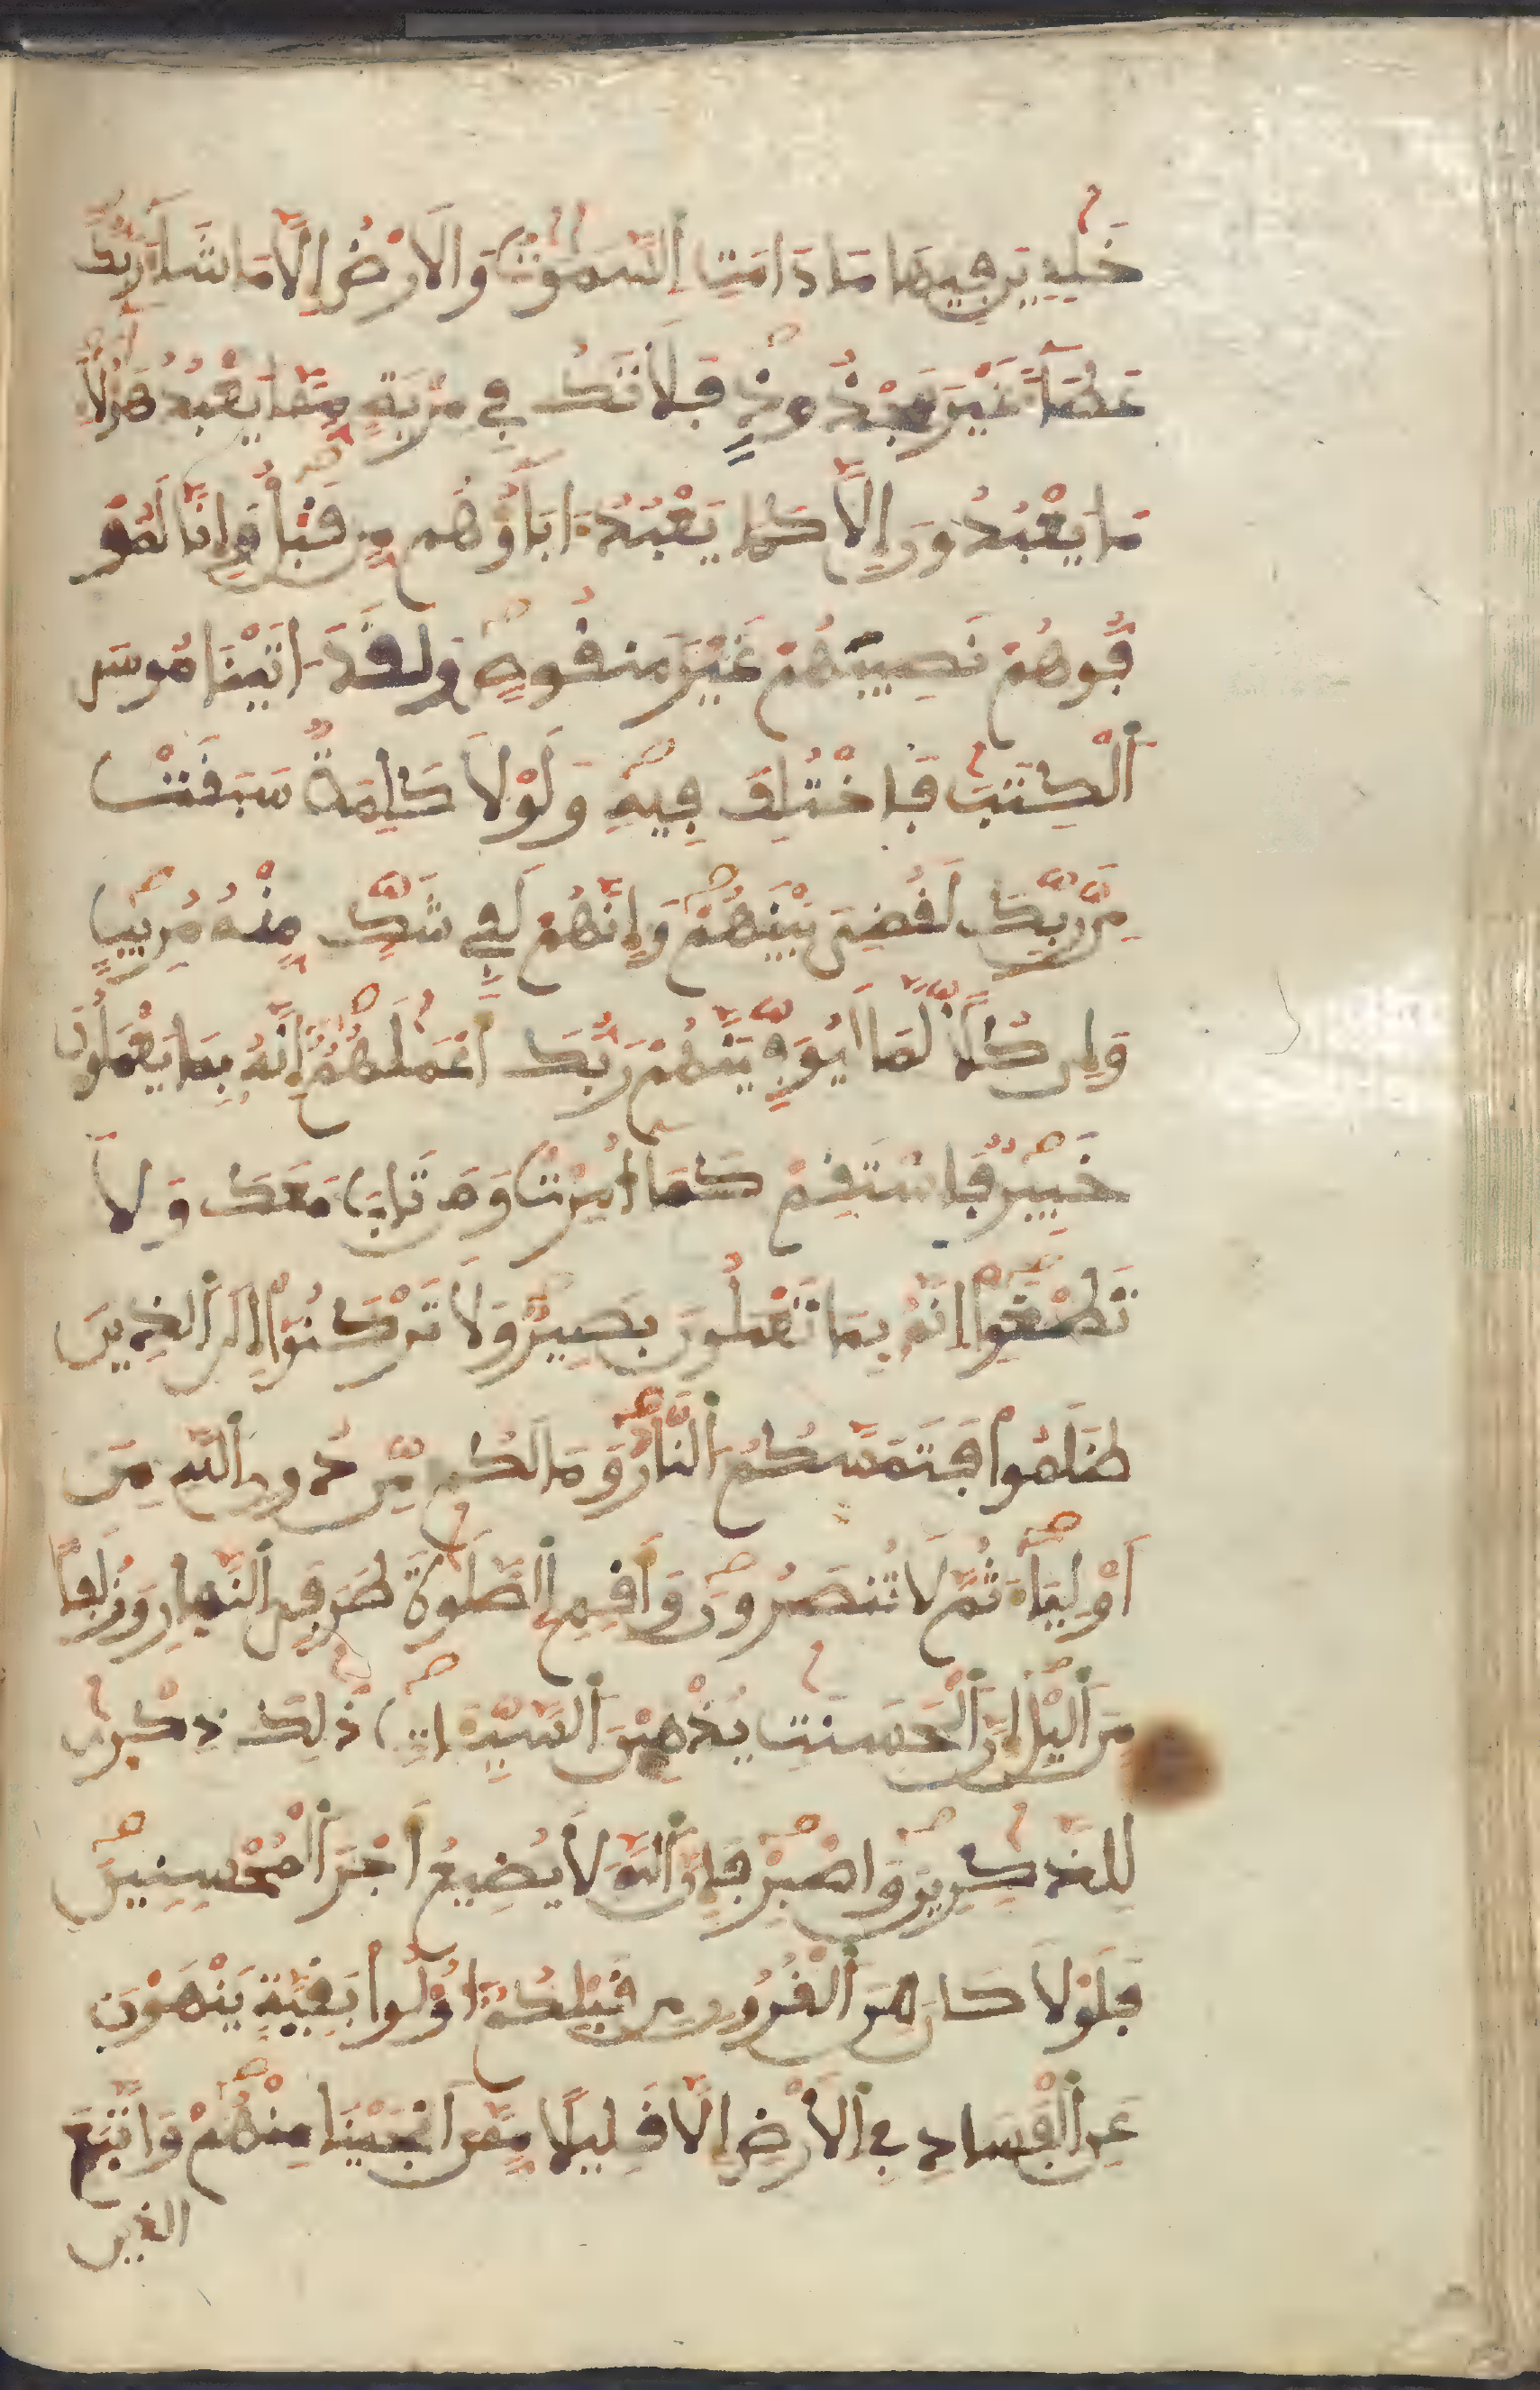 خَٰلِدِينَ فِيهَا مَا دَامَتِ اِ۬لسَّمَٰوَٰتُ وَالَارْضُ إِلَّا مَا شَآءَ رَبُّكَ
عَطَآءً غَيْرَ مَجْذُوذٖ فَلَا تَكُ فِے مِرْيَةٖ مِّمَّا يَعْبُدُ هَٰٓؤُلَآءِ
مَا يَعْبُدُونَ إِلَّا كَمَا يَعْبُدُ ءَابَآؤُهُم مِّن قَبْلُ وَإِنَّا لَمُوَ
فُّوهُمْ نَصِيبَهُمْ غَيْرَ مَنقُوصٖ وَلَقَدَ اٰتَيْنَا مُوسَى
اَ۬لْكِتَٰبَ فَاخْتُلِفَ فِيهِ وَلَوْلَا كَلِمَةٞ سَبَقَتْ
مِن رَّبِّكَ لَقُضِيَ بَيْنَهُمْ وَإِنَّهُمْ لَفِے شَكّٖ مِّنْهُ مُرِيبٖ
وَإِن كُلّٗا لَّمَا لَيُوَفِّيَنَّهُمْ رَبُّكَ أَعْمَٰلَهُمُۥٓ إِنَّهُۥ بِمَا يَعْمَلُونَ
خَبِيرٞ فَاسْتَقِمْ كَمَآ أُمِرْتَ وَمَن تَابَ مَعَكَ وَلَا
تَطْغَوِا اِنَّهُۥ بِمَا تَعْمَلُونَ بَصِيرٞ وَلَا تَرْكَنُوٓاْ إِلَى اَ۬لذِينَ
ظَلَمُواْ فَتَمَسَّكُمُ اُ۬لنَّارُ وَمَا لَكُم مِّن دُونِ اِ۬للَّهِ مِنَ
اَوْلِيَآءَ ثُمَّ لَا تُنصَرُونَ وَأَقِمِ اِ۬لصَّلَوٰةَ طَرَفَيِ اِ۬لنَّهَارِ وَزُلَفاٗ
مِّنَ اَ۬ليْلِ إِنَّ اَ۬لْحَسَنَٰتِ يُذْهِبْنَ اَ۬لسَّيِّـَٔاتِ ذَٰلِكَ ذِكْرَىٰ
لِلذَّٰكِرِينَ وَاصْبِرْ فَإِنَّ اَ۬للَّهَ لَا يُضِيعُ أَجْرَ اَ۬لْمُحْسِنِينَ
فَلَوْلَا كَانَ مِنَ اَ۬لْقُرُونِ مِن قَبْلِكُمُۥٓ أُوْلُواْ بَقِيَّةٖ يَنْهَوْنَ
عَنِ اِ۬لْفَسَادِ فِے اِ۬لَارْضِ إِلَّا قَلِيلاٗ مِّمَّنَ اَنجَيْنَا مِنْهُمْ وَاتَّبَعَ
الذين